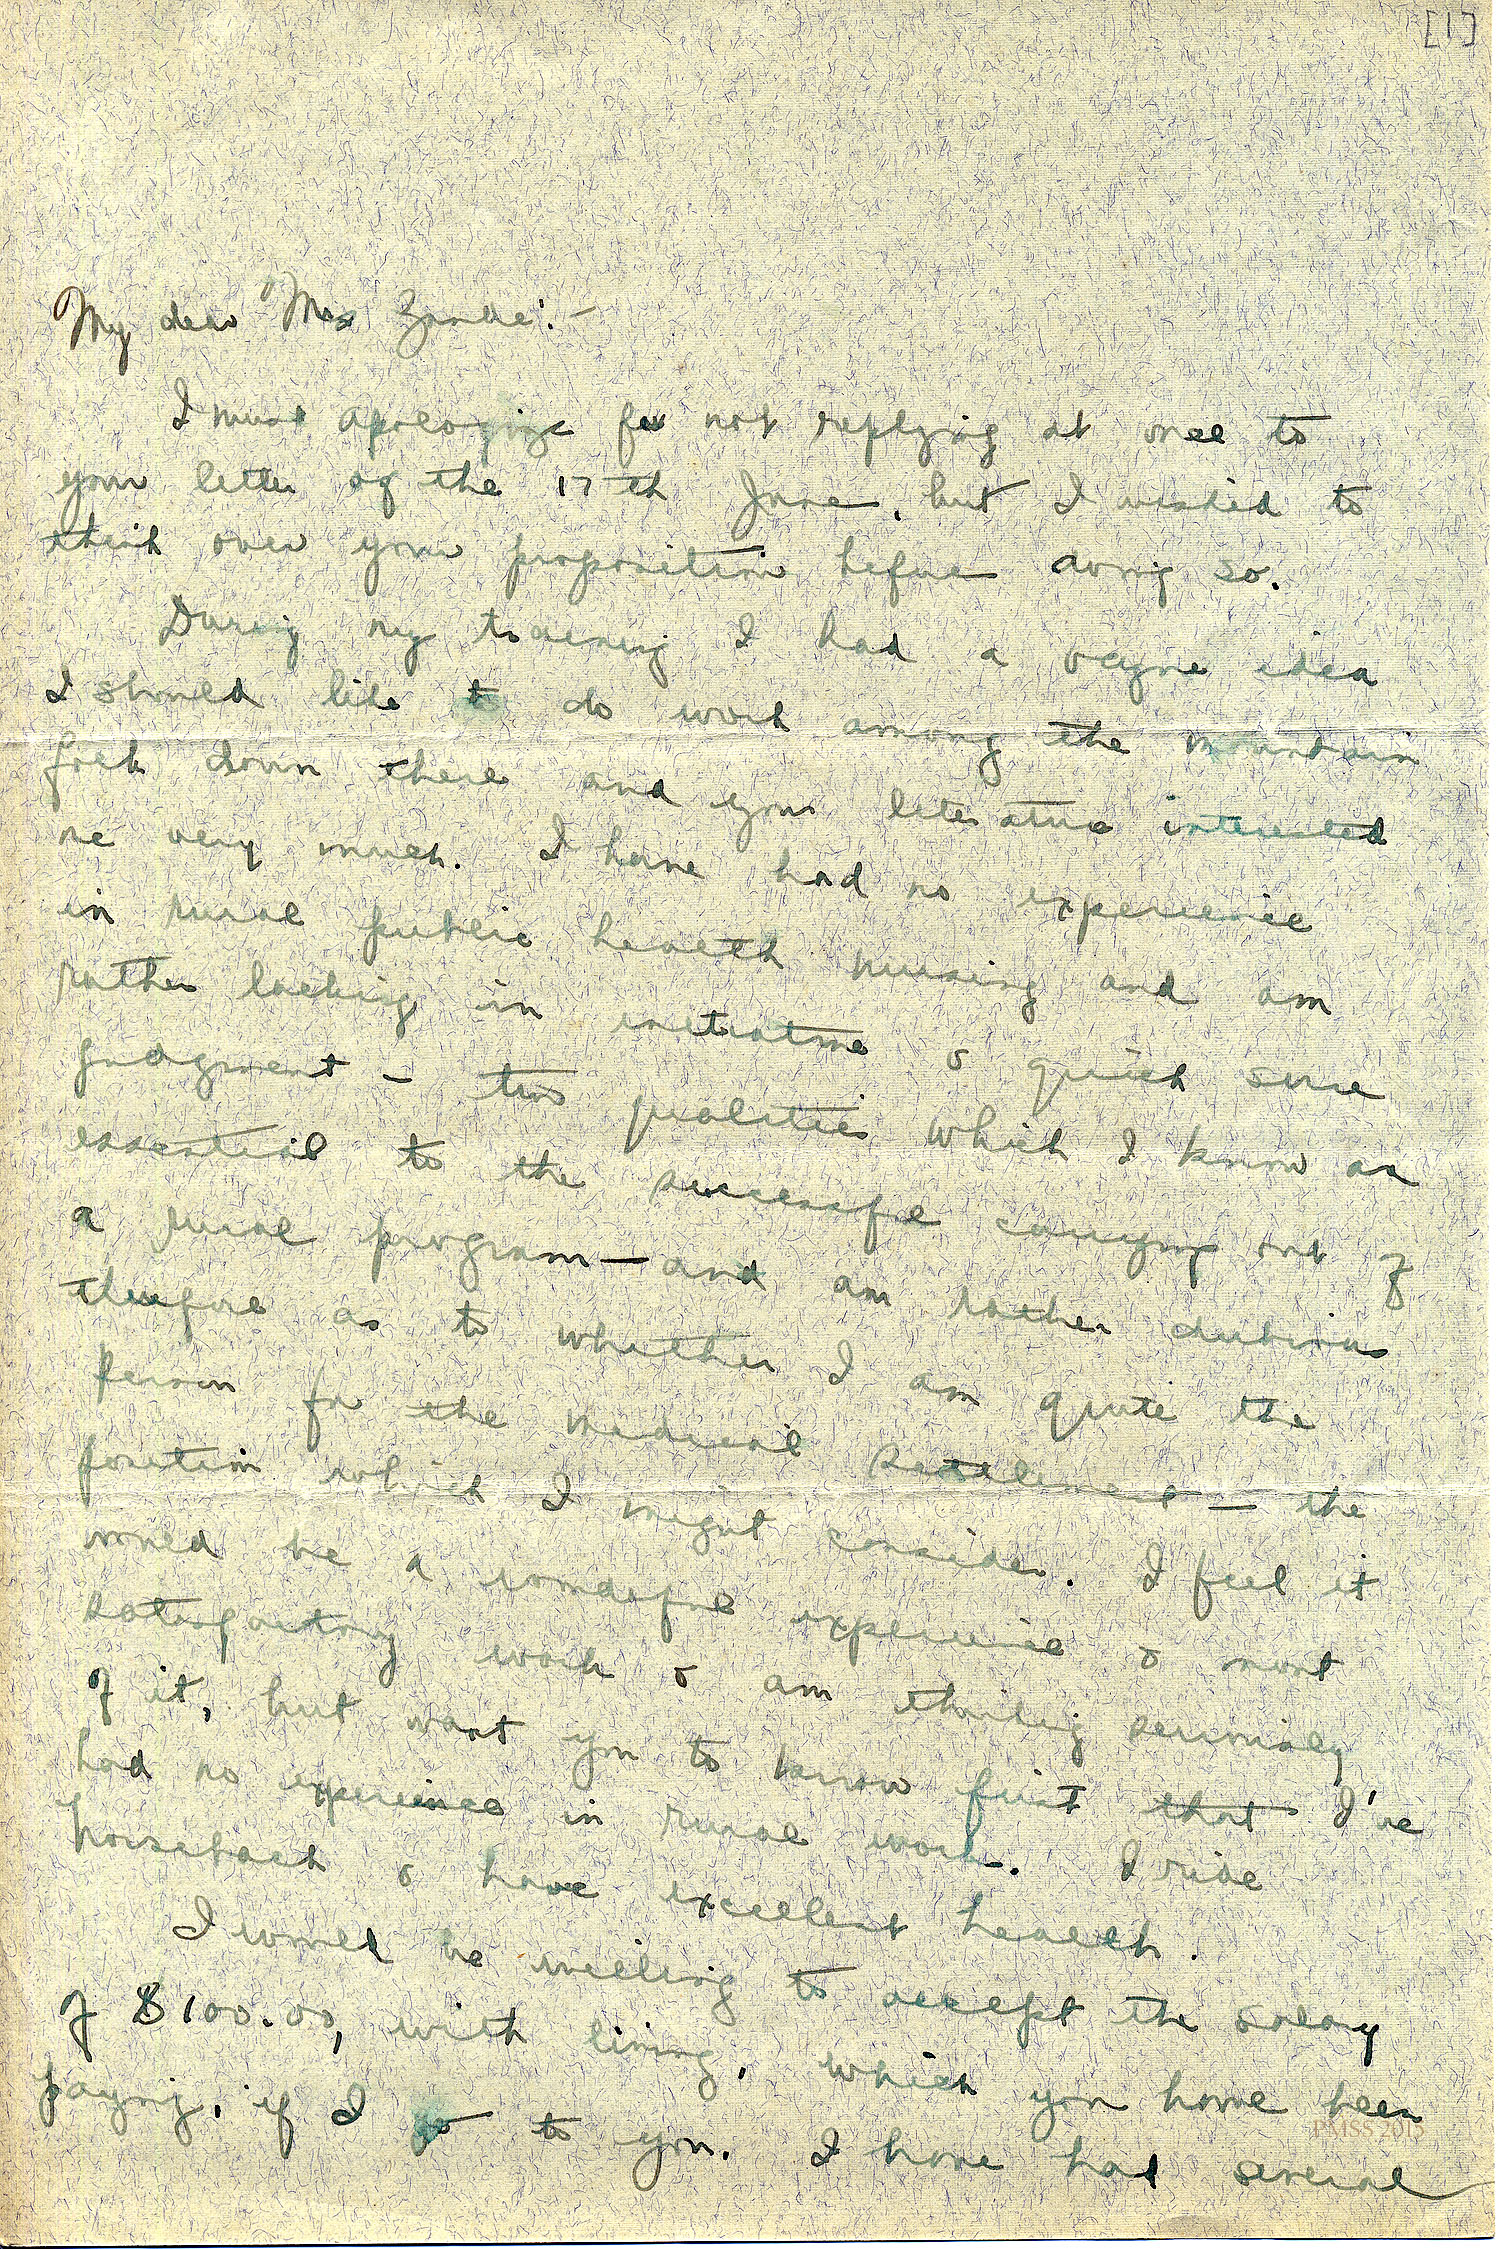 [1]
My dear Mrs Zande:-
I must apologize for not replying at once to
your letter of the 17th June, but I wished to
think over your proposition before doing so.
During my training I had a vague idea
I should like to do work among the mountain
folk down there and your literature interested
me very much. I have had no experience
in rural public health nursing and am
rather lacking in initiative & quick sure
judgment - two qualities which I know are
essential to the successful carrying out of
a rural program - and am rather dubious
therefore as to whether I am quite the
person for the Medical Settlement - the
position which I might consider. I feel it
would be a wonderful experience & most
satisfactory work & am thinking seriously
of it, but want you to know first that I've
had no experience in rural work. I ride
horseback & have excellent health.
I would be willing to accept the salary
of $100.00, with living, which you have been
paying, if I go to you. I have had several
PMSS 2015